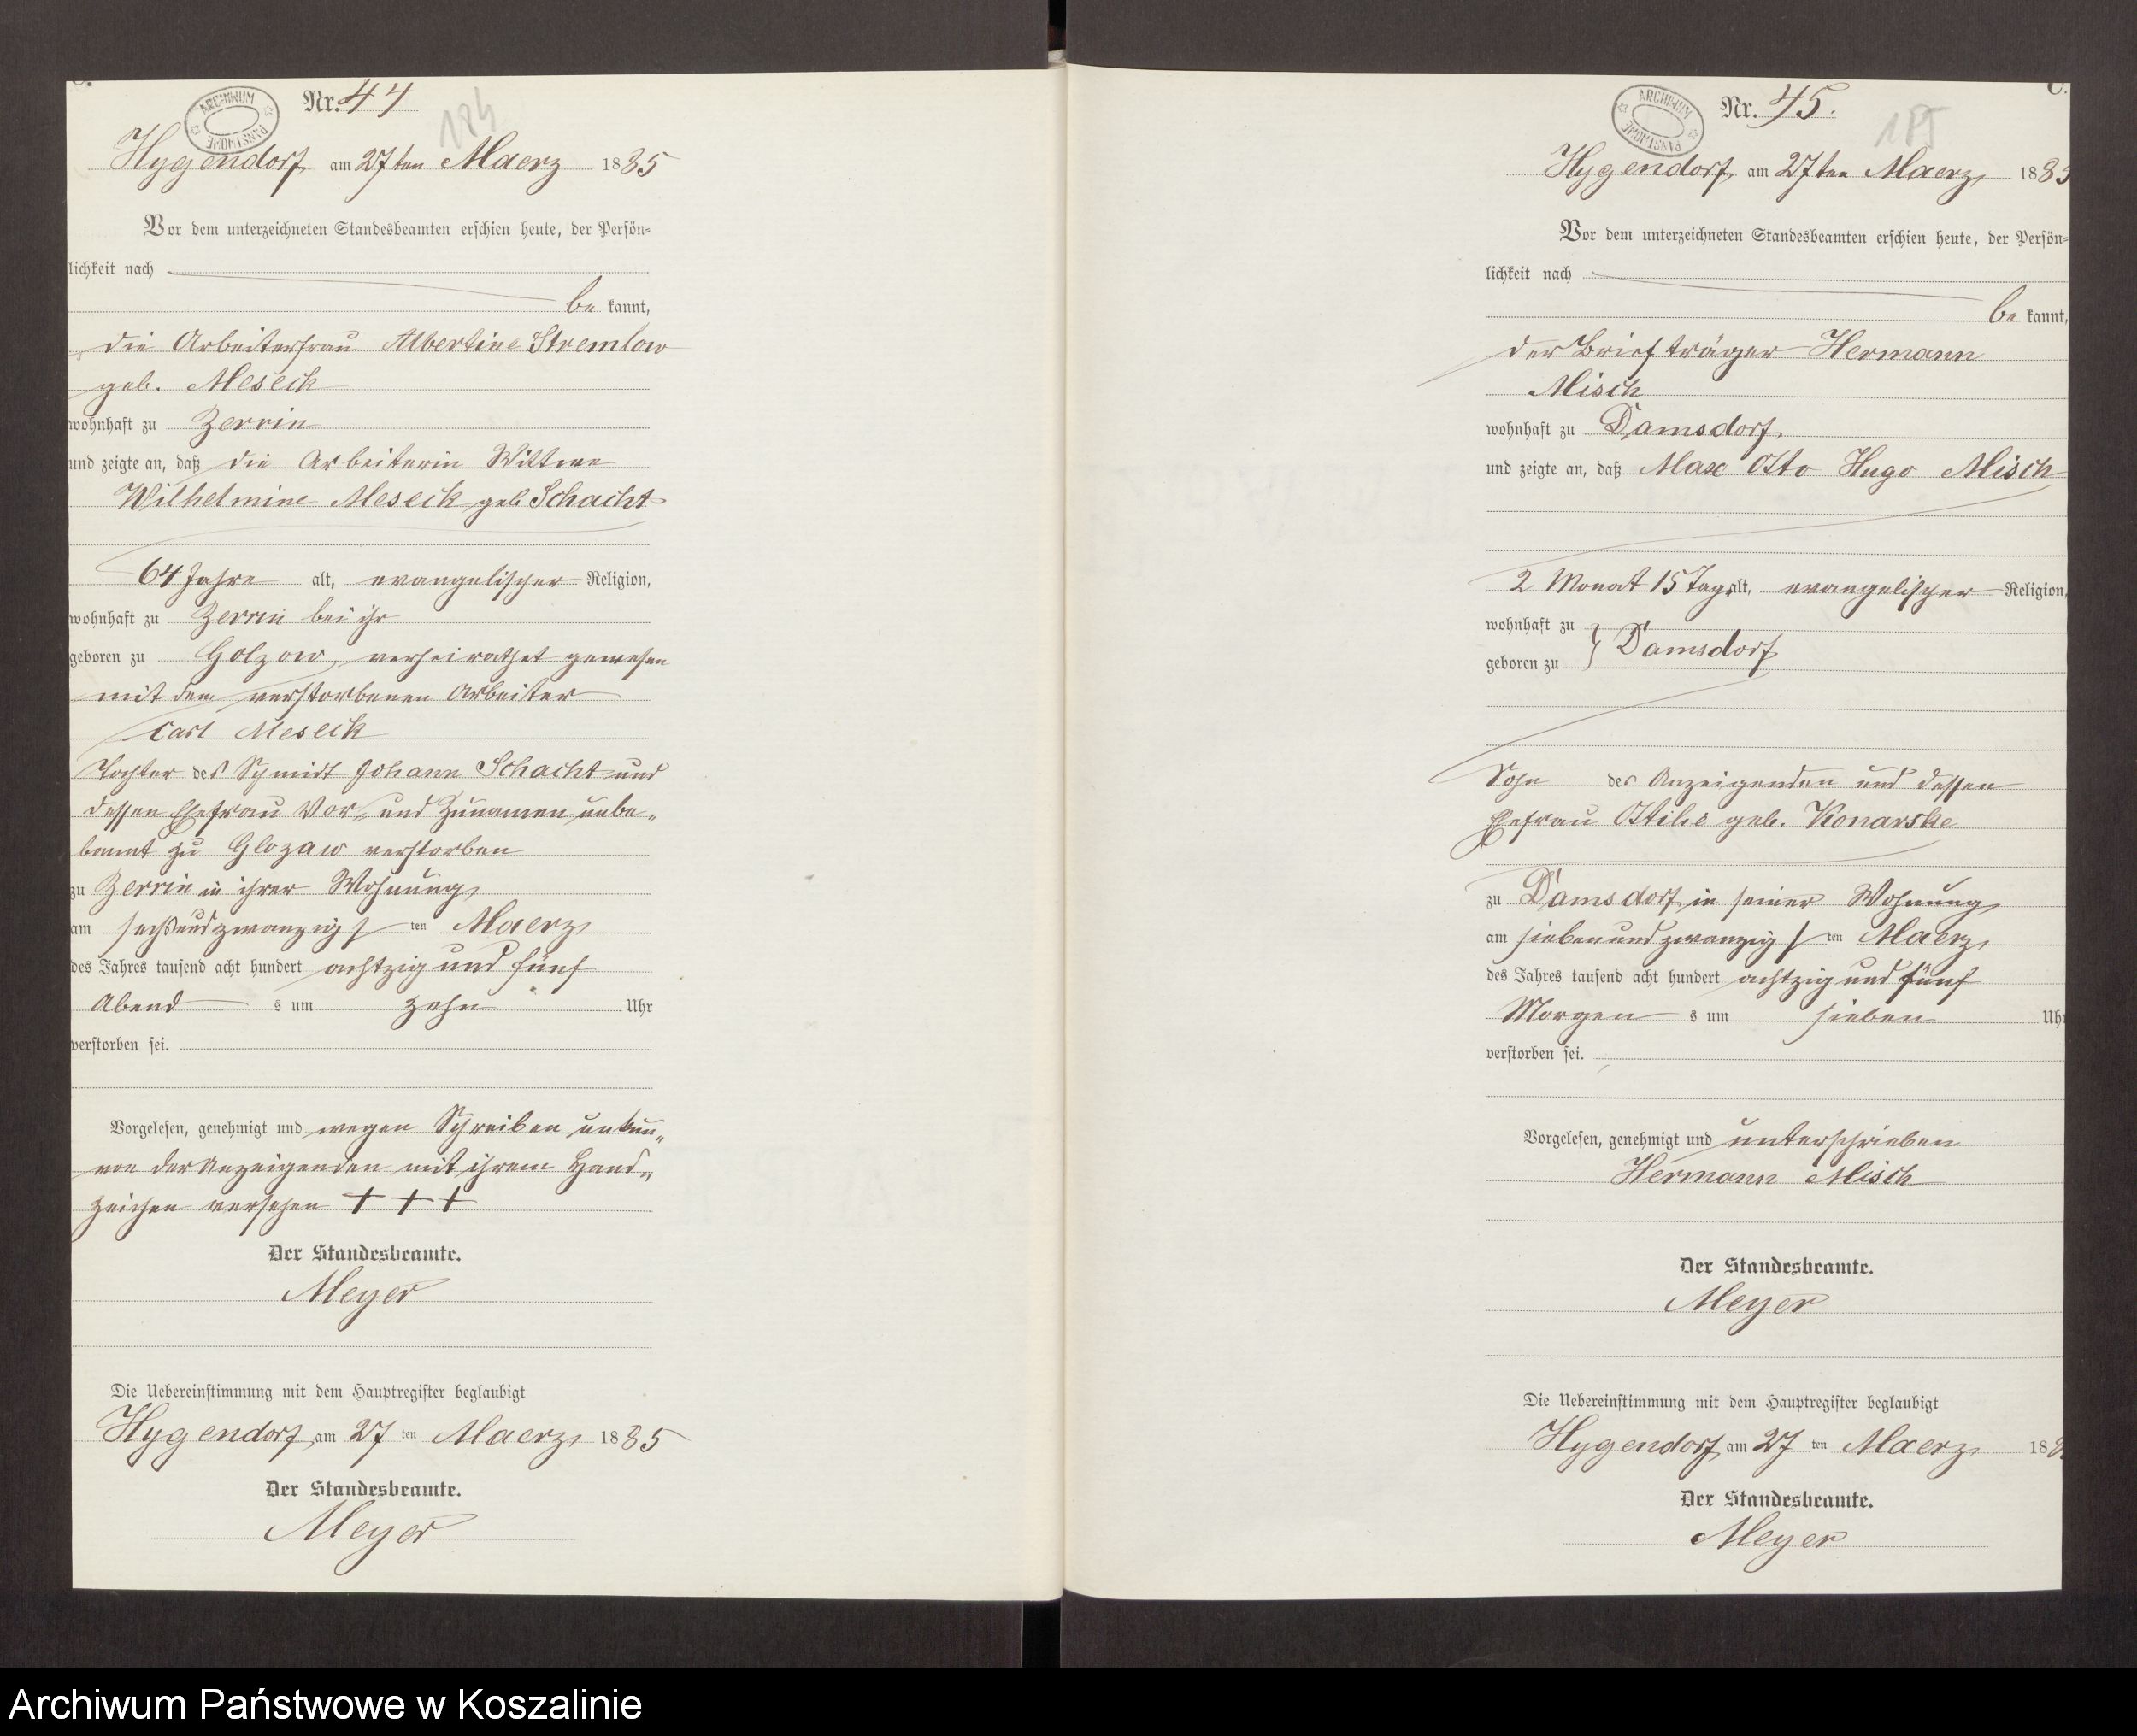 C.
ARCHIWUM PAŃSTWOWE
Nr. 44
184
Hygendorf am 27ten Maerz 1885
Vor dem unterzeichneten Standesbeamten erschien heute, der Persön-
lichkeit nach
be kannt,
die Arbeiterfrau Albertine Stremlow
geb. Meseck
wohnhaft zu Zerrin
und zeigte an, daß die Arbeiterin Wittwe
Wilhelmine Meseck geb Schacht
64 Jahre alt, evangelischer Religion,
wohnhaft zu Zerrin bei ihr
geboren zu Golzow, verheirathet gewesen
mit dem verstorbenen Arbeiter
Carl Meseck
Tochter des Schmidt Johann Schacht und
dessen Ehefrau Vor- und Zunamen unbe-
kannt zu Glozaw verstorben
zu Zerrin in ihrer Wohnung
am sechsundzwanzigs ten Maerz
des Jahres tausend acht hundert achtzig und fünf
Abend s um zehn Uhr
verstorben sei.
Vorgelesen, genehmigt und wegen Schreiben unkun-
von der Anzeigenden mit ihrem Hand-
zeichen versehen + + +
Der Standesbeamte.
Meyer
Die Uebereinstimmung mit dem Hauptregister beglaubigt
Hygendorf am 27 ten Maerz 1885
Der Standesbeamte.
Meyer
C.
ARCHIWUM PAŃSTWOWE
Nr. 45.
185
Hygendorf am 27ten Maerz 1885
Vor dem unterzeichneten Standesbeamten erschien heute, der Persön-
lichkeit nach
be kannt,
der Briefträger Hermann
Misch
wohnhaft zu Damsdorf
und zeigte an, daß Max Otto Hugo Misch
2 Monat 15 Tage alt, evangelischer Religion,
wohnhaft zu
geboren zu } Damsdorf
Sohn des Anzeigenden und dessen
Ehefrau Ottilie geb. Konarske
zu Damsdorf in seiner Wohnung
am siebenundzwanzigs ten Maerz
des Jahres tausend acht hundert achtzig und fünf
Morgen s um sieben Uhr
verstorben sei.
Vorgelesen, genehmigt und unterschrieben
Hermann Misch
Der Standesbeamte.
Meyer
Die Uebereinstimmung mit dem Hauptregister beglaubigt
Hygendorf am 27 ten Maerz 188
Der Standesbeamte.
Meyer
Archiwum Państwowe w Koszalinie